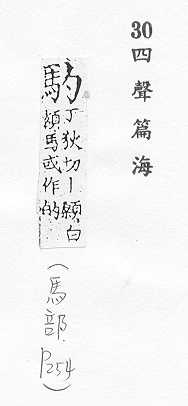 30 四聲篇海
馰
丁狄切丨顙白
顙馬或作的
(馬部 P254)